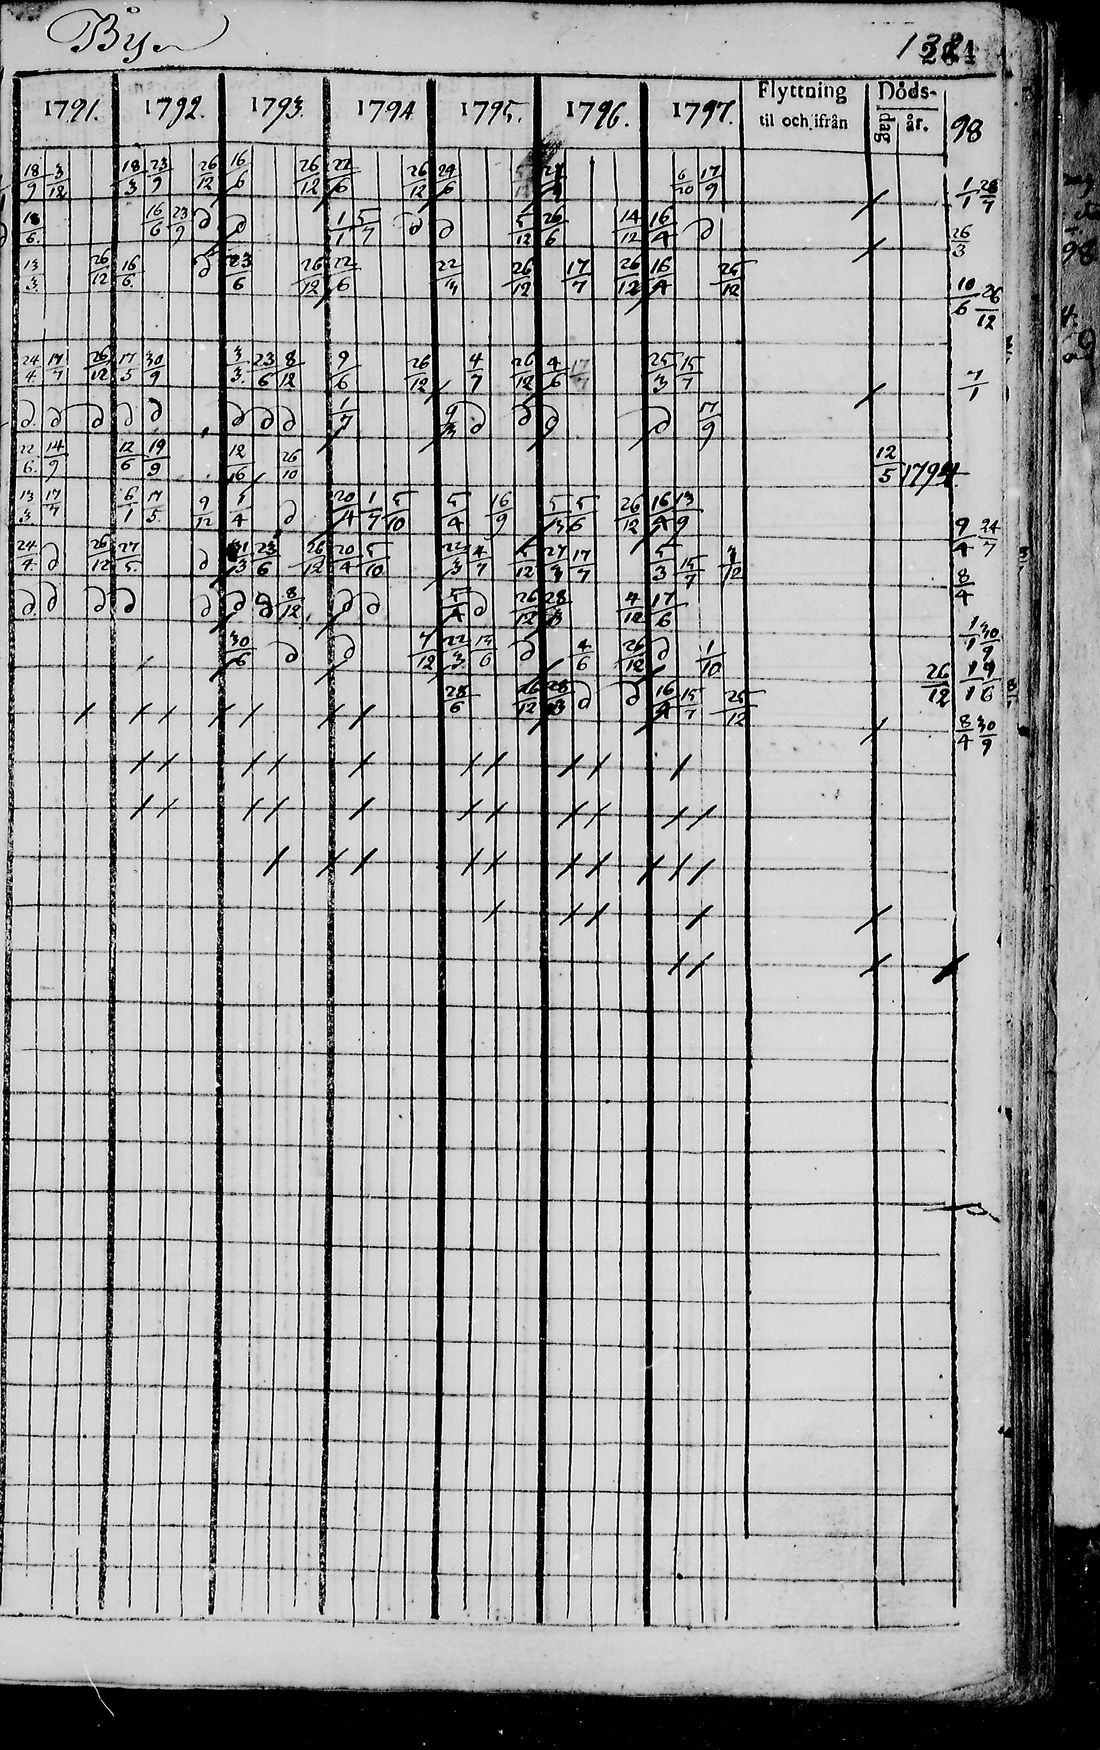 Byn
1791. 1792. 1793. 1794 1795. 1796. 1797. Flyttning til och ifrån Döds- dag år. 98
18/9 3/12 18/3 23/9 26/12 16/6 26/12 22/6 26/12 29/6 6/20 17/9 1/1 28/7
18/6. 16/6 23/9 d d 1/1 5/7 d d 5/12 26/6 14/12 16/4 d 26/3
13/3. 26/12 16/6. d 23/6 26/12 22/6 22/3 26/12 17/7 26/12 16/4 26/12 10/6 26/12
24/4. 17/7 26/12 17/5 30/9 3/3. 23/6 8/12 9/6 26/12 4/7 26/12 4/6 17/7 25/3 15/7 7/1
d d d d d d d d 1/7 9/3 d d d d 7/9
22/6. 14/9 12/6 19/9 12/16 26/10 12/5 1794
13/3 17/7 6/1 17/5. 9/12 5/4 d 20/4 1/7 5/10 5/4 16/9 5/3 5/6 26/12 16/4 13/9 9/4 24/7
24/4. d 26/12 27/5. d 31/3 23/6 26/12 20/4 5/10 22/3 4/7 5/12 27/3 17/7 5/3 15/7 3/12 8/4
d d d d d d d 8/12 d d 5/4 d 26/12 28/3 4/12 17/6 1/1 30/9
30/6 d d 7/12 22/3. 14/6 d 4/6 26/12 d 1/10 26/12 19/16
28/6 26/12 28/3 d d 16/4 15/7 25/12 8/4 30/9